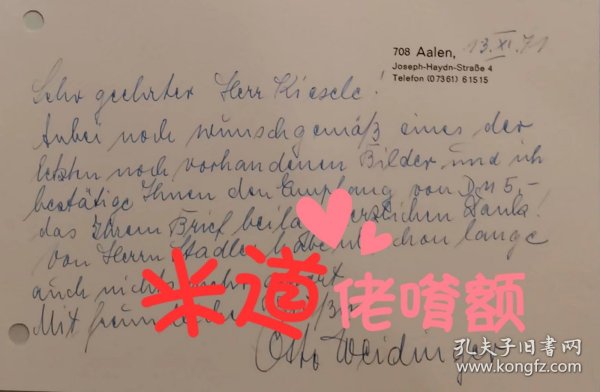 708 Aalen, 13. XI. 71
Joseph-Haydn-Straße 4
Telefon (07361) 61515
Sehr geehrter Herr Kiesele!
Anbei noch wunschgemäß eines der
letzten noch vorhandenen Bilder und ich
bestätige Ihnen den Empfang von DM 5,-
das Ihrem Brief Dank!
von Herrn Stadler schon lange
auch nichts
Mit
Otto Weidinger
米道
佬嗰额
孔夫子旧书网
www.kongfz.com